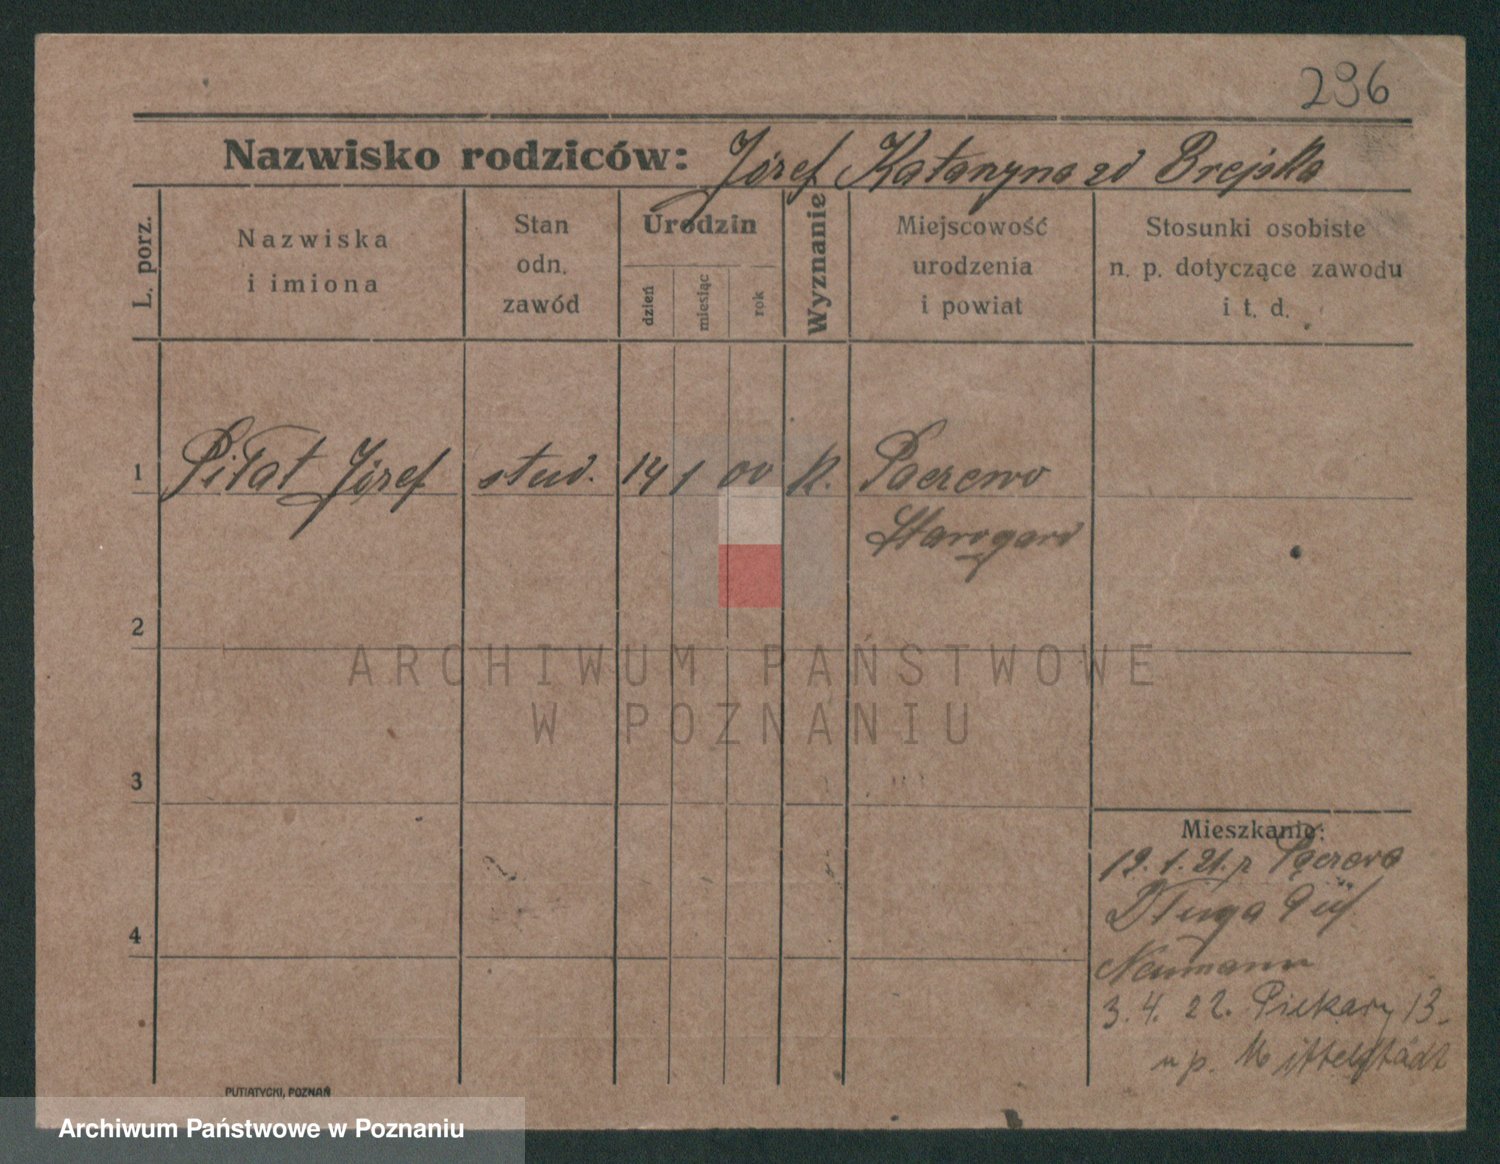 296
Nazwisko rodziców: Józef Katarzyna zd Brejska
L. porz.
Nazwiska
i imiona
Stan
odn.
zawód
Urodzin
dzień
miesiąc
rok
Wyznanie
Miejscowość
urodzenia
i powiat
Stosunki osobiste
n. p. dotyczące zawodu
i t. d.
1
Piłat Józef stud. 14 1 00 k. Paczewo
Starogard
2
ARCHIWUM PAŃSTWOWE
W POZNANIU
3
Mieszkanie:
19.1.21. z
Długa 9
4
Neumann
3.4.22. Piekary 13.
u p. Mittelstädt
PUTIATYCKI, POZNAŃ
Archiwum Państwowe w Poznaniu